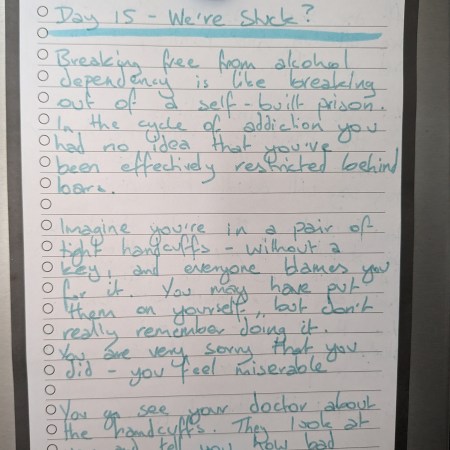 Day 15 - We're Stuck?
Breaking free from alcohol
dependency is like breaking
out of a self-built prison.
In the cycle of addiction you
had no idea that you've
been effectively restricted behind
bars.
Imagine you're in a pair of
tight handcuffs - without a
key, and everyone blames you
for it. You may have put
them on yourself, but don't
really remember doing it.
You are very sorry that you
did - you feel miserable
You go see your doctor about
the handcuffs. They look at
and tell you how bad